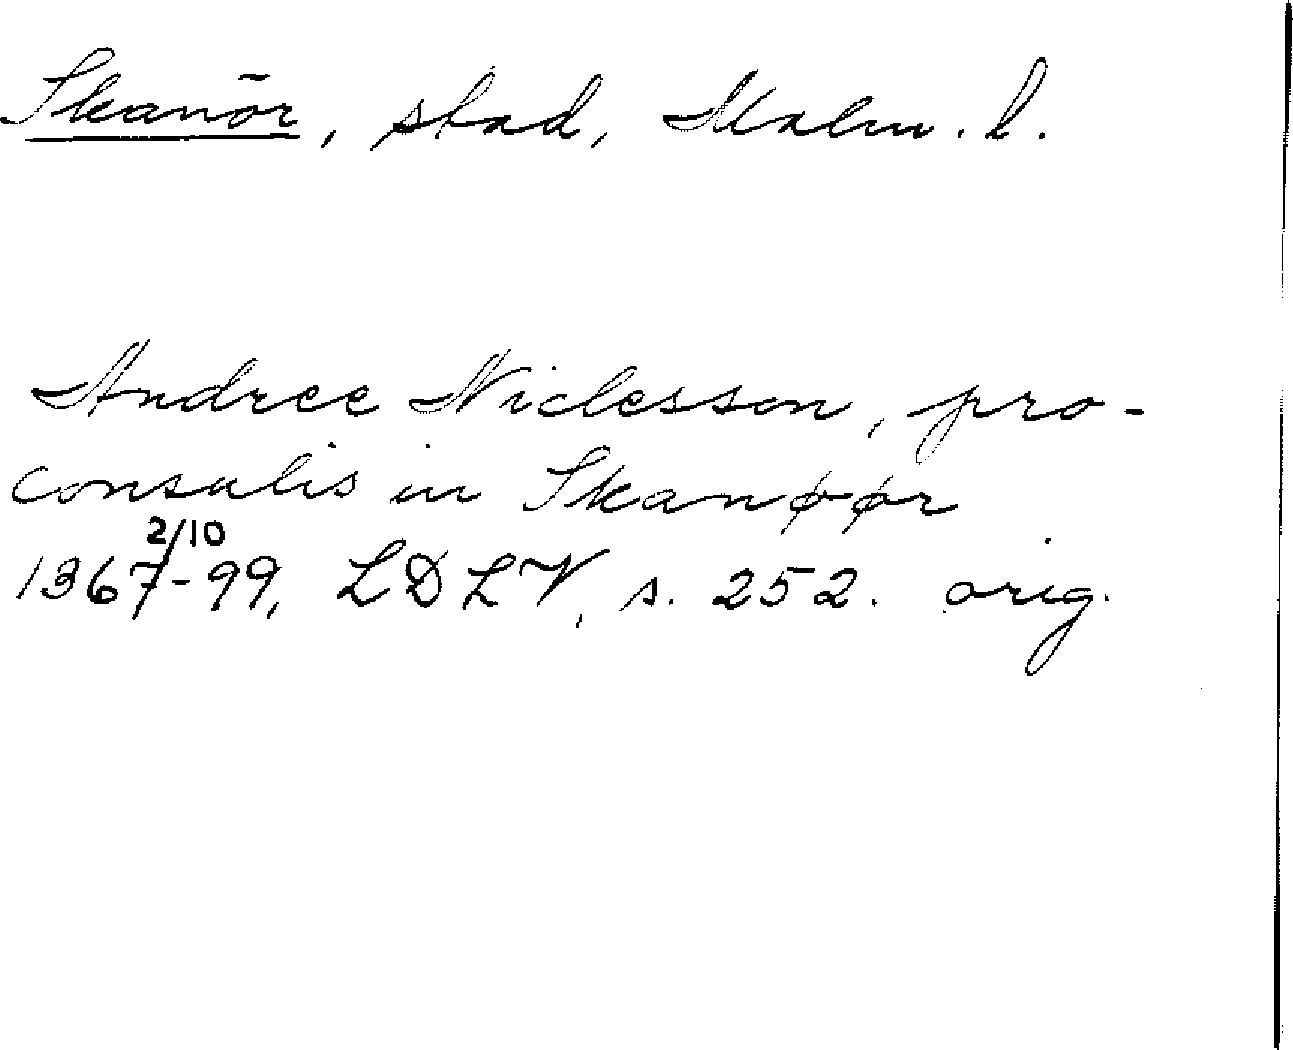 Skanör, stad, Malm. l.
Andree Niclesson, pro-
consulis in Skanøør
2/10
1367-99, LDLV, s. 252. orig.